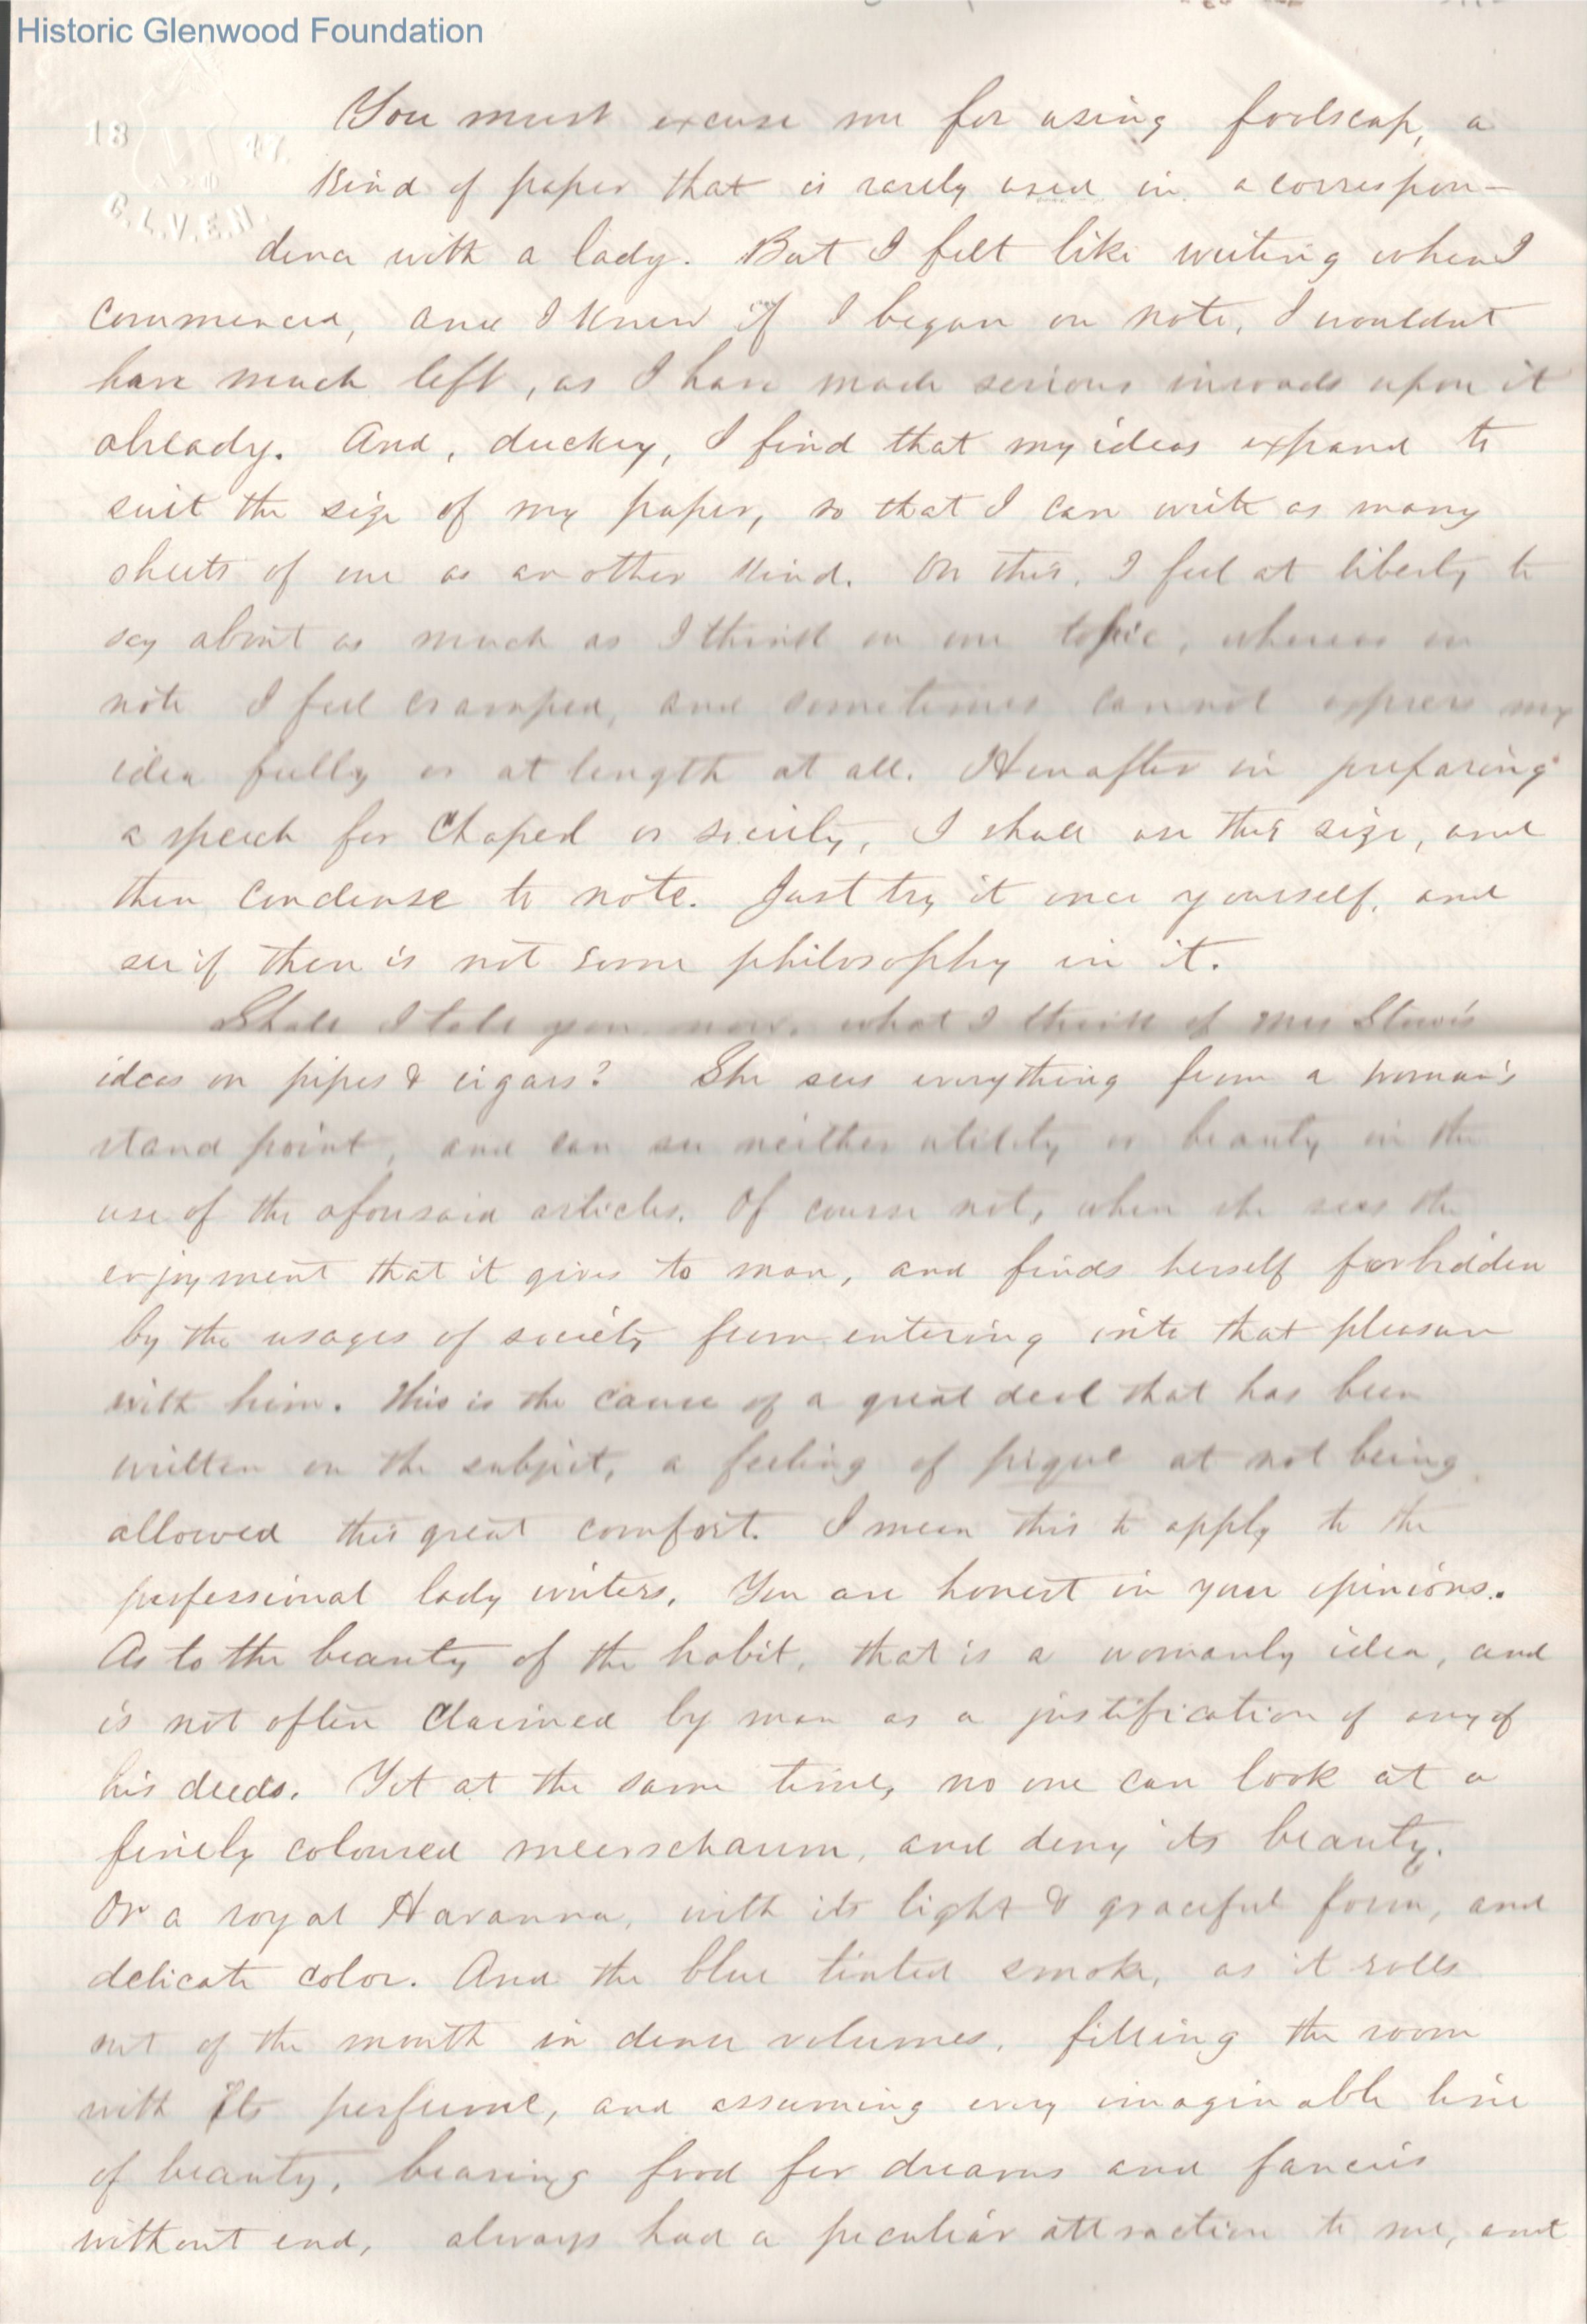 Historic Glenwood Foundation
18 47
You must excuse me for using foolscap, a
kind of paper that is rarely used in a correspon-
dence with a lady. But I felt like writing when I
commenced, and I knew if I began on note, I wouldnt
have much left, as I have made serious inroads upon it
already. And, duckey, I find that my ideas expand to
suit the size of my paper, so that I can write as many
sheets of one as another kind. On this, I feel at liberty to
say about as much as I think on one topic, whereas on
note I feel cramped, and sometimes cannot express my
idea fully or at length at all. Hereafter in preparing
a speech for Chapel or society, I shall use this size, and
then condense to note. Just try it once yourself, and
see if there is not some philosophy in it.
Shall I tell you now, what I think of Mrs Stowe's
ideas on pipes & cigars? She sees everything from a woman's
stand point, and can see neither utility or beauty in the
use of the aforesaid articles. Of course not, when she sees the
enjoyment that it gives to man, and finds herself forbidden
by the usages of society from entering into that pleasure
with him. This is the cause of a great deal that has been
written on the subject, a feeling of pique at not being
allowed this great comfort. I mean this to apply to the
professional lady writers. You are honest in your opinions.
As to the beauty of the habit, that is a womanly idea, and
is not often claimed by man as a justification of any of
his deeds. Yet at the same time, no one can look at a
finely coloured meerschaum, and deny its beauty.
Or a royal Havanna, with its light & graceful form, and
delicate color. And the blue tinted smoke, as it rolls
out of the mouth in dense volumes, filling the room
with its perfume, and assuming every imaginable line
of beauty, bearing food for dreams and fancies
without end, always had a peculiar attraction to me, and